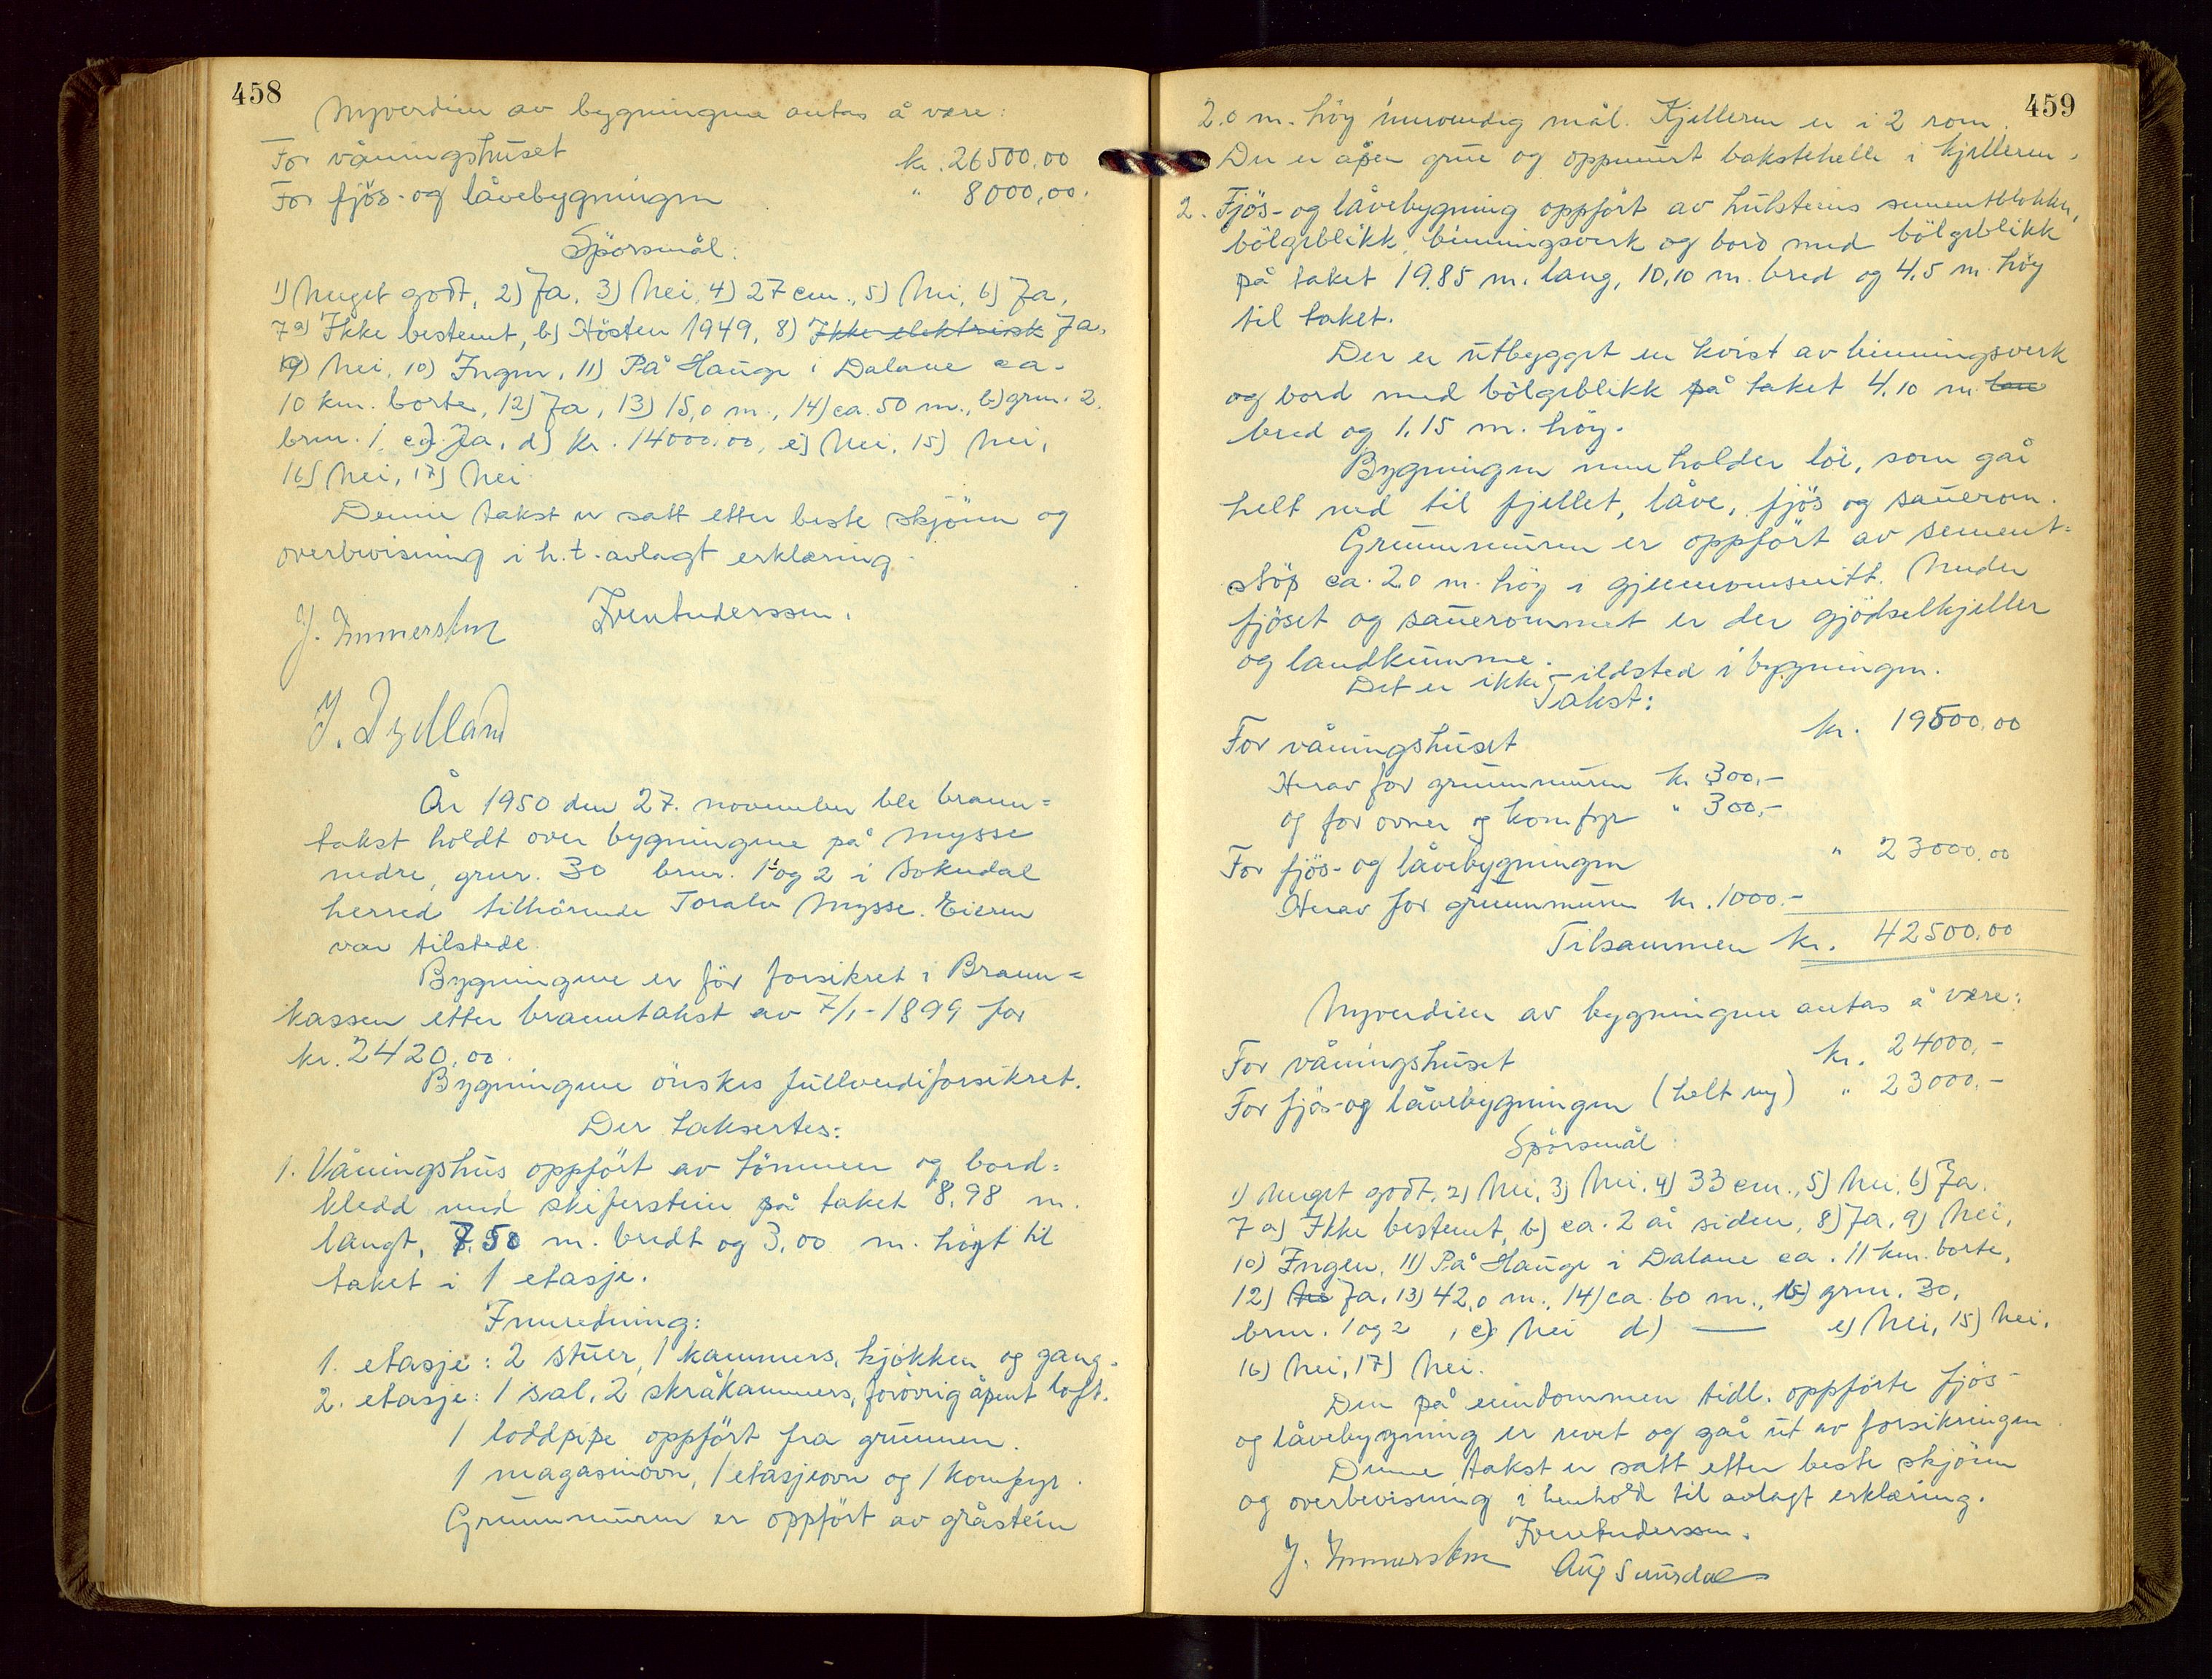 458
Nyverdien av bygningene antas å være:
For våningshuset kr. 26500,00
For fjøs- og låvebygningen " 8000,00.
Spörsmål:
1) Meget godt, 2) Ja, 3) Nei, 4) 27 cm., 5) Nei, 6) Ja,
7a) Ikke bestemt, b) Hösten 1949, 8) Ikke elektrisk Ja,
9) Nei, 10) Ingen, 11) På Hauge i Dalane ca.
10 km. borte, 12) Ja, 13) 15,0 m., 14) ca. 50 m., b) grnr. 2.
brnr. 1, c) Ja, d) kr. 14000,00, e) Nei, 15) Nei,
16) Nei, 17) Nei
Denne takst er satt etter beste skjönn og
overbevisning i h.t. avlagt erklæring.
J. Immerstein
J. Dydland
År 1950 den 27. november ble brann=
takst holdt over bygningene på Mysse
nedre, grnr. 30 brnr. 1 og 2 i Sokndal
herred tilhörende Toralv Mysse. Eieren
var tilstede.
Bygningene er för forsikret i Brann=
kassen etter branntakst av 7/1-1899 for
kr. 2420,00.
Bygningene önskes fullverdiforsikret.
Der taksertes:
1. Våningshus oppfört av tömmer og bord=
kledd med skiferstein på taket 8,98 m.
langt, 7,50 m. bredt og 3,00 m. höyt til
taket i 1 etasje.
Innredning:
1. etasje: 2 stuer, 1 kammers, kjökken og gang.
2. etasje: 1 sal, 2 skråkammers, forövrig åpent loft.
1 loddpipe oppfört fra grunnen.
1 magasinovn, 1 etasjeovn og 1 komfyr.
Grunnmuren er oppfört av gråstein
459
2.0 m. höy innvendig mål. Kjelleren er i 2 rom.
Der er åpen grue og oppmurt bakstehelle i kjelleren.
2. Fjös- og låvebygning oppfört av hulsteins sementblokker,
bölgeblikk, binningsverk og bord med bölgeblikk
på taket 19,85 m. lang, 10,10 m. bred og 4,5 m. höy
til taket.
Der er utbygget en kvist av binningsverk
og bord med bölgeblikk på taket 4,10 m. lan
bred og 1,15 m. höy.
Bygningen inneholder löe, som går
helt ned til fjellet, låve, fjös og sauerom.
Grunnmuren er oppfört av sement=
stöp ca. 2.0 m. höy i gjennomsnitt. Under
fjöset og sauerommet er der gjödselkjeller
og landkumme.
Det er ikke ildsted i bygningen.
Takst:
For våningshuset kr. 19500,00
Herav for grunnmuren kr. 300,-
og for ovner og komfyr " 300,-
For fjös- og låvebygningen " 23000,00
Herav for grunnmuren kr. 1000.-
Tilsammen kr. 42500,00
Nyverdien av bygningene antas å være:
For våningshuset kr. 24000,-
For fjös- og låvebygningen (helt ny) " 23000,-
Spörsmål:
1) Meget godt, 2) Nei, 3) Nei, 4) 33 cm., 5) Nei, 6) Ja.
7 a) Ikke bestemt, b) ca. 2 år siden, 8) Ja, 9) Nei,
10) Ingen, 11) På Hauge i Dalane ca. 11 km. borte,
12) Nei Ja, 13) 42,0 m., 14) ca. 60 m., b) grnr. 30,
brnr. 1 og 2, c) Nei d) — e) Nei, 15) Nei,
16) Nei, 17) Nei.
Den på eiendommen tidl. oppförte fjös-
og låvebygning er revet og går ut av forsikringen
Denne takst er satt etter beste skjönn
og overbevisning i henhold til avlagt erklæring.
J. Immerstein